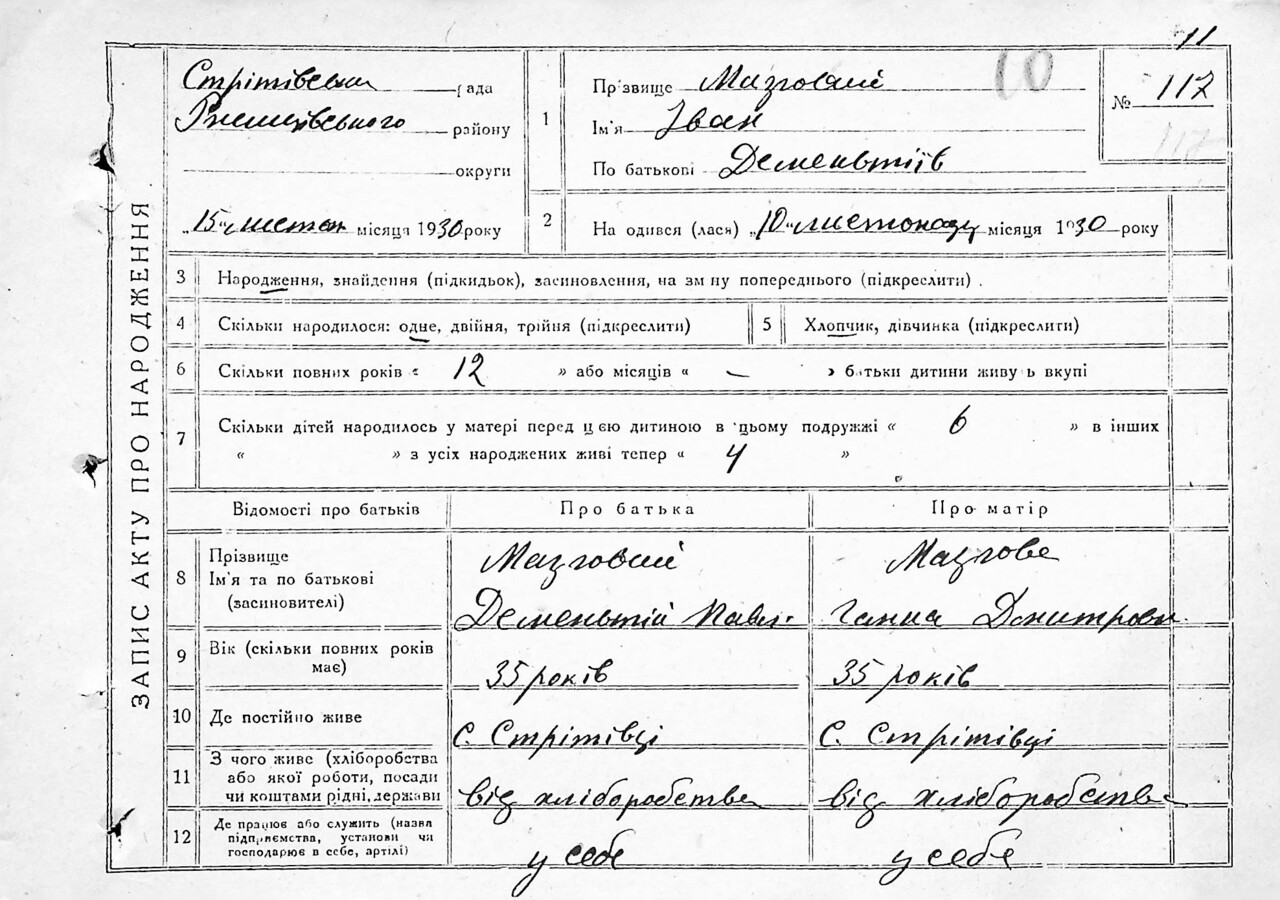 11
ЗАПИС АКТУ ПРО НАРОДЖЕННЯ
Стрітівська рада
району
округи
„15" листоп місяця 1930 року
1 Пр звище Мазговий
Ім'я Іван
По батькові Дементіїв
10
№ 117
117
2 На одився (лася) „10" листопаду місяця 1930 року
3 Народження, знайдення (підкидьок), засиновлення, на зм ну попереднього (підкреслити) .
4 Скільки народилося: одне, двійня, трійня (підкреслити)
5 Хлопчик, дівчинка (підкреслити)
6 Скільки повних років « 12 » або місяців « — » батьки дитини живу ь вкупі
7 Скільки дітей народилось у матері перед цією дитиною в цьому подружжі « 6 » в інших
« » з усіх народжених живі тепер « 4 »
Відомості про батьків Про батька Про матір
8 Прізвище
Ім'я та по батькові
(засиновителі)
Мазговий
Дементій Павл.
Мазгова
Ганна Дмитровн
9 Вік (скільки повних років
має)
35 років
35 років
10 Де постійно живе
с. Стрітівці
с. Стрітівці
11 З чого живе (хліборобства
або якої роботи, посади
чи коштами рідні, держави
від хліборобства
від хліборобства
12 Де працює або служить (назва
підприємства, установи чи
господарює в себе, артілі)
у себе
у себе